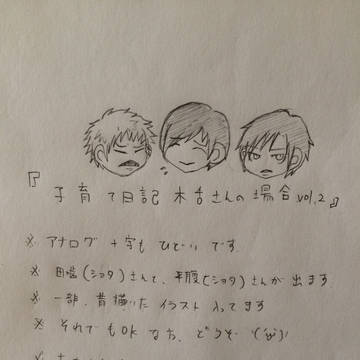 『子育て日記 木舌さんの場合 vol.2』
※ アナログ+字もひどいです
※ 田噛(ショタ)さんて、平腹(ショタ)さんが出ます
※ 一部、昔描いたイラスト入ってます
※ それでもOKなら、どうぞ